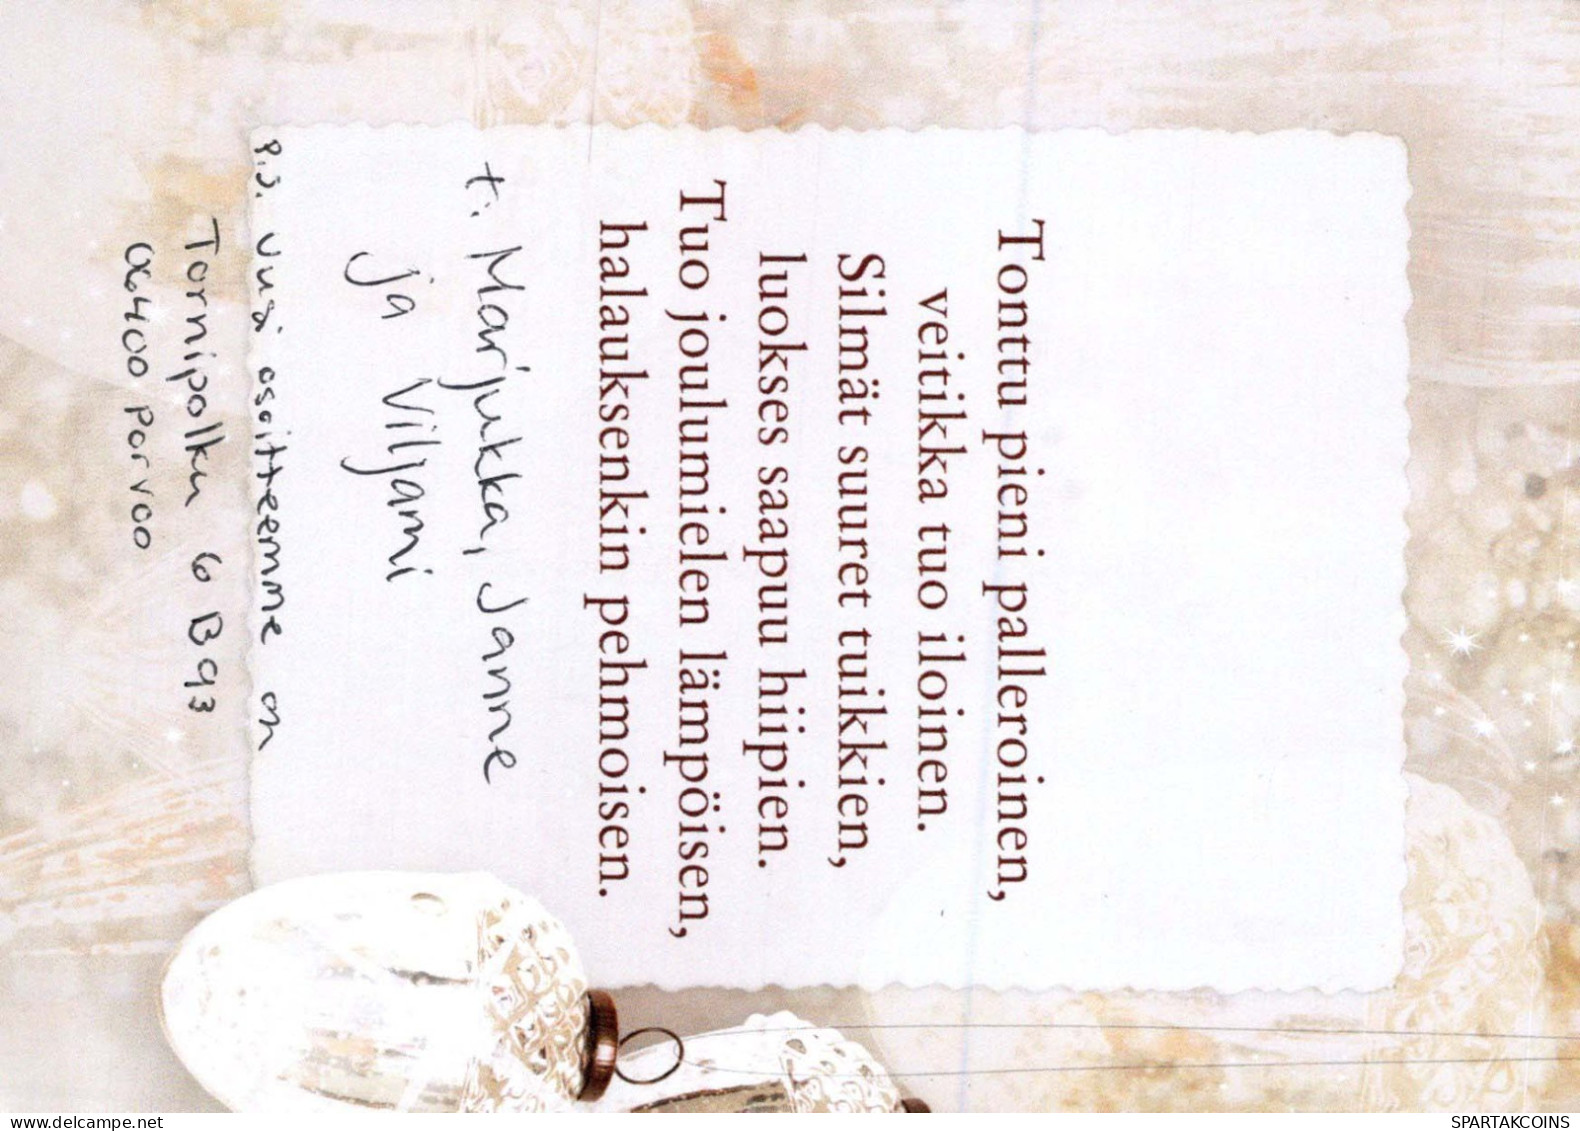 Tonttu pieni palleroinen,
veitikka tuo iloinen.
Silmät suuret tuikkien,
luokses saapuu hiipien.
Tuo joulumielen lämpöisen,
halauksenkin pehmoisen.
t. Marjukka, Janne
ja Viljami
P.S. Uusi osoitteemme on
Tornipolku 6 B 93
06400 Porvoo
www.delcampe.net
SPARTAKCOINS